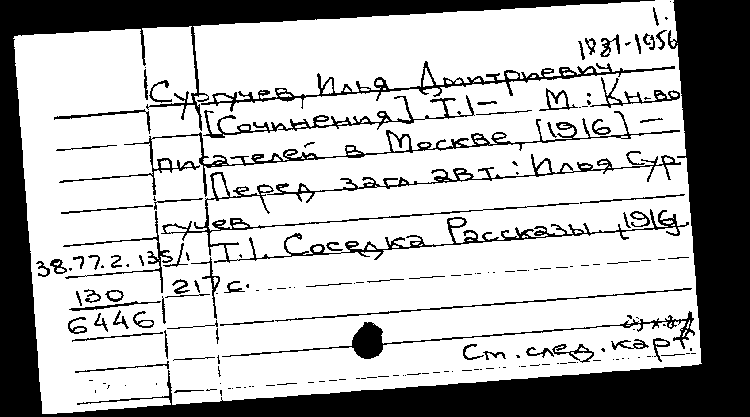 1.
1881-1956
Сургучев, Илья Дмитриевич.
[Сочинения]. Т. 1 - М.: Кн-во
писателей в Москве, [1916] -
Перед загл. авт.: Илья Сур-
гучев
38.77.2.135/1 Т.1. Соседка Рассказы [1916].
130 217 с.
6446
См. след. карт.